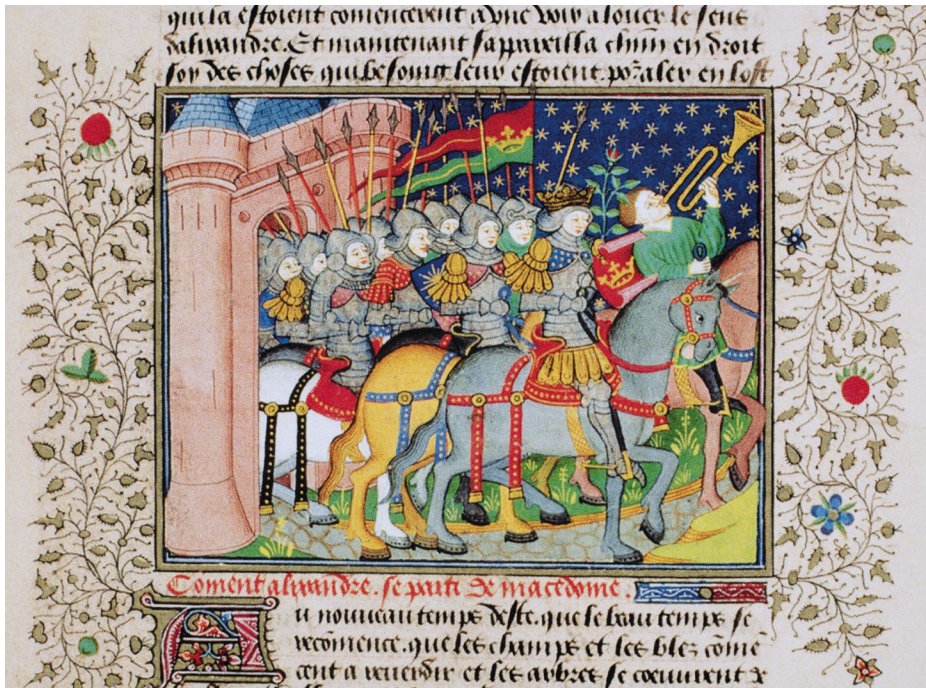 qui la estoient comencerent a une voix a louer le sens
dalixandre. Et maintenant sappareilla chũn en droit
soy des choses qui besoing leur estoient por aler en lost
Coment alixandre. se parti de macedoine.
Au nouveau temps deste. que le beau temps se
recõmence. que les champs et les blez cõmẽ
cent a reverdir et les arbres se coeuvrent